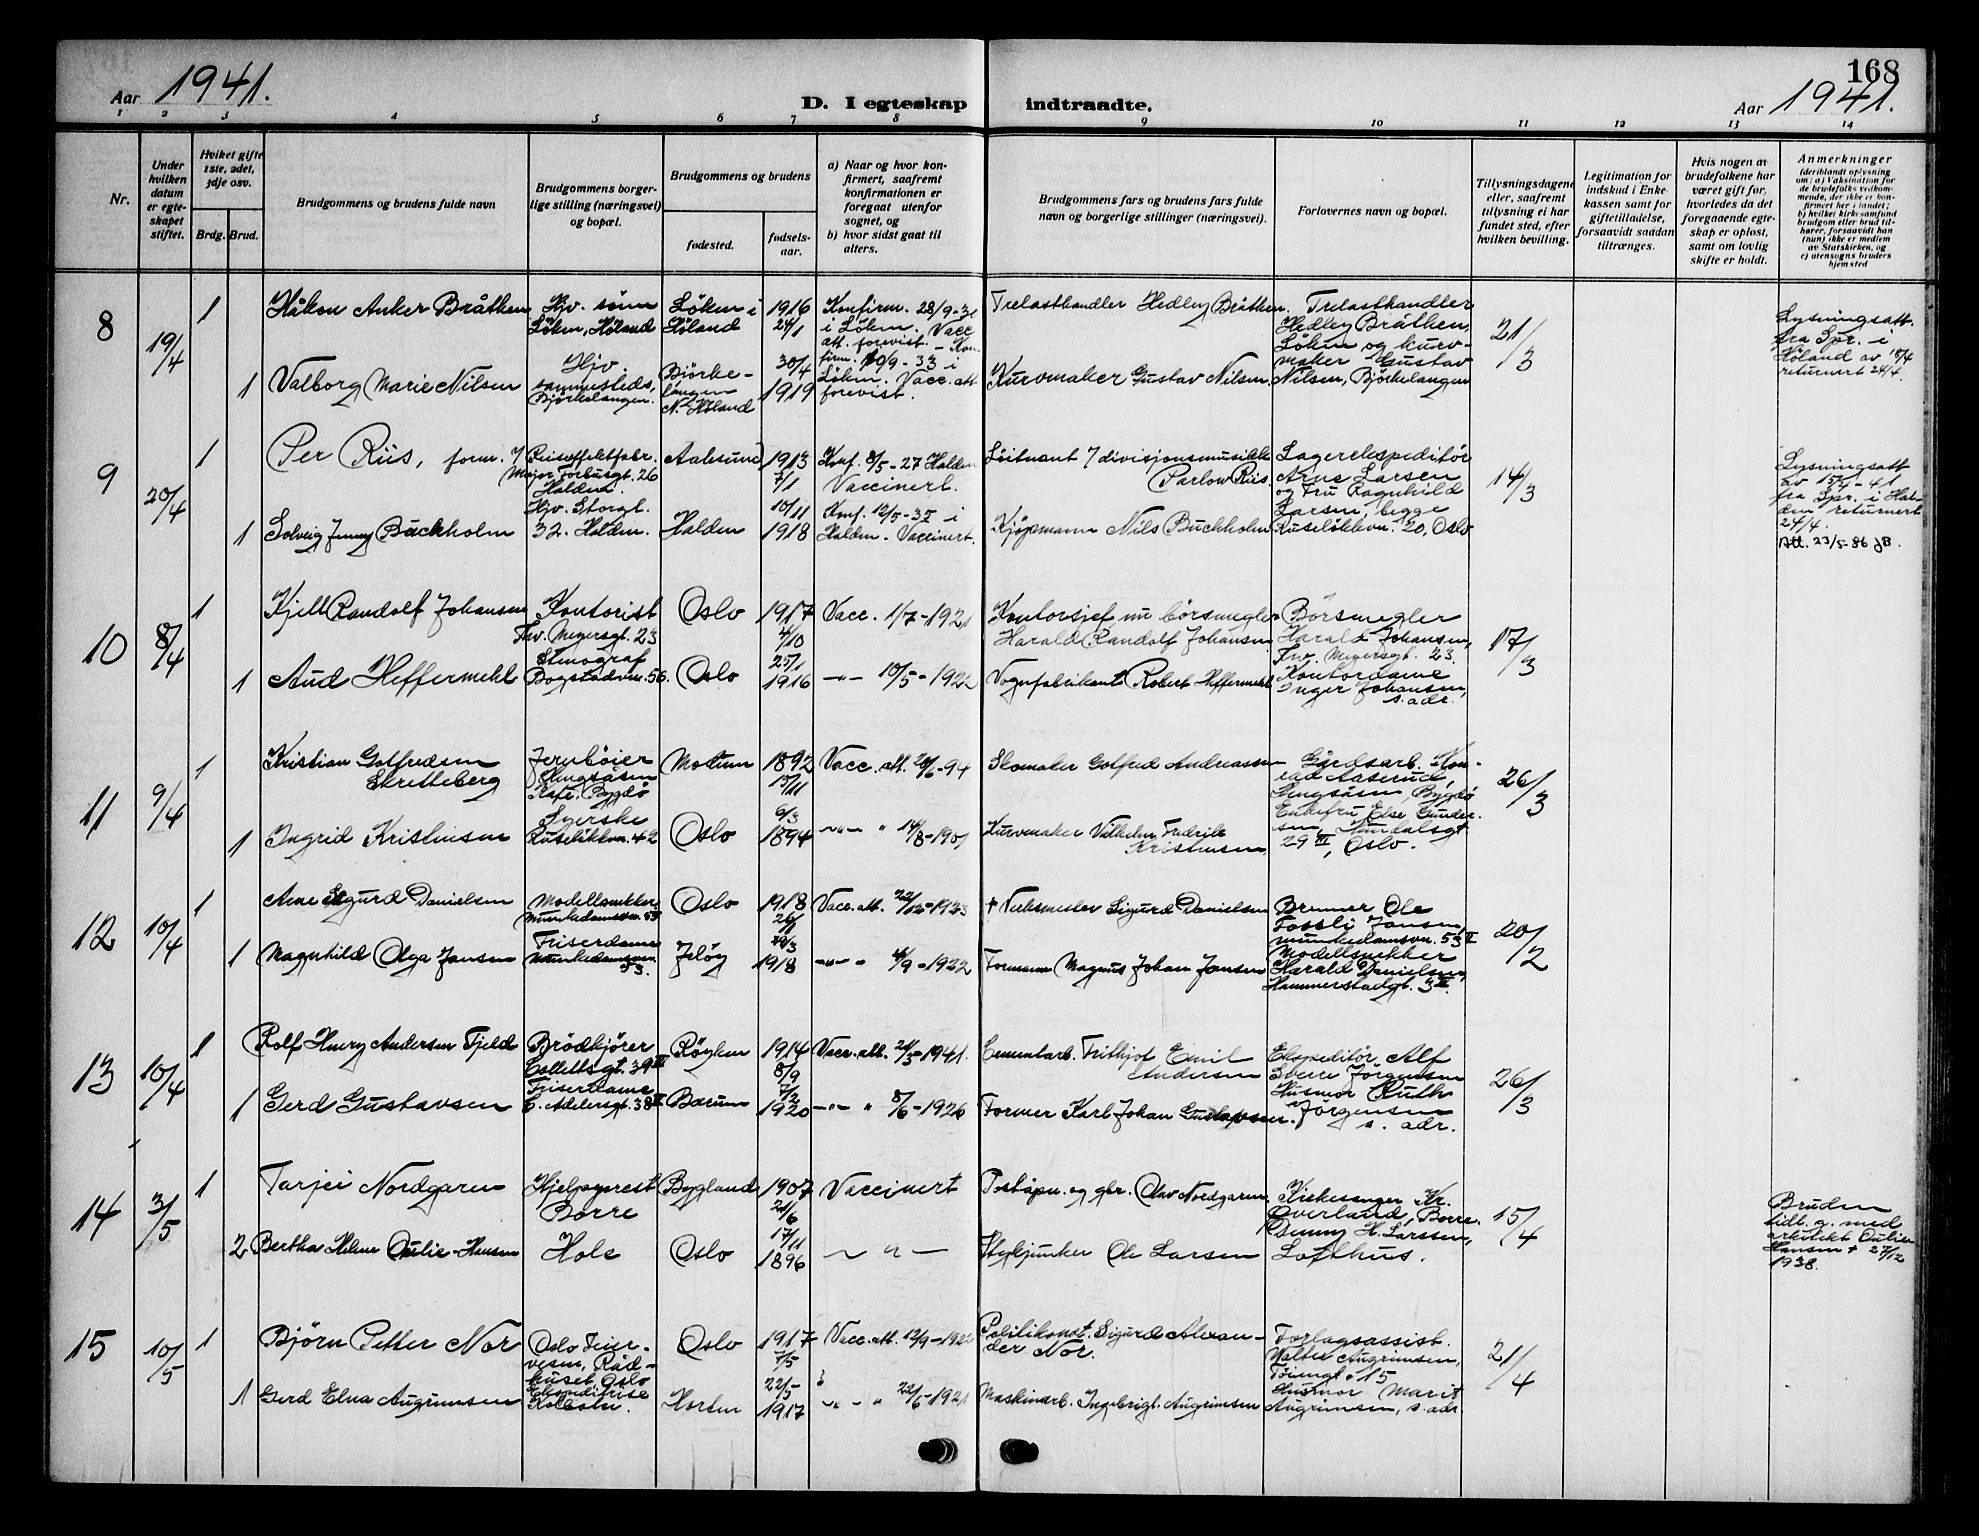 168
Aar 1941.
D. I egteskap indtraadte.
Aar 1941.
1 2 3 4 5 6 7 8 9 10 11 12 13 14
Nr.
Under hvilken datum er egteskapet stiftet.
Hvilket gifte 1ste, 2det, 3dje osv.
Brdg. Brud.
Brudgommens og brudens fulde navn
Brudgommens borgerlige stilling (næringsvei) og bopæl.
Brudgommens og brudens
fødested.
fødselsaar.
a) Naar og hvor konfirmert, saafremt konfirmationen er foregaat utenfor sognet, og
b) hvor sidst gaat til alters.
Brudgommens fars og brudens fars fulde navn og borgerlige stillinger (næringsvei).
Forlovernes navn og bopæl.
Tillysningsdagene eller, saafremt tillysning ei har fundet sted, efter hvilken bevilling.
Legitimation for indskud i Enkekassen samt for giftetilladelse, forsaavidt saadan tiltrænges.
Hvis nogen av brudefolkene har været gift før, hvorledes da det foregaaende egteskap er opløst, samt om lovlig skifte er holdt.
Anmerkninger (deriblandt oplysning om: a) Vaksination for de brudefolks vedkommende, der ikke er konfirmert her i landet; b) hvilket kirkesamfund brudgom eller brud tilhører, forsaavidt han (hun) ikke er medlem av Statskirken, og c) utensogns bruders hjemsted
8 19/4 1 Håkon Anker Bråthen
Hjv. sönn Löken, Höland
Löken i Höland
1916 24/1
Konfirm. 28/9-30 i Löken. Vacc. att. forevist.
Trelasthandler Hedley Bråthen.
Trelasthandler Hedley Bråthen, Löken og kurvmaker Gustav Nilsen, Björkelangen
21/3
Lysningsatt. fra Spr. i Höland av 18/4 returnert 24/4.
1 Valborg Marie Nilsen
Hjv. sammesteds, Björkelangen.
Björkelangen N. Höland
30/4 1919
Konfirm. 10/9-33 i Löken. Vacc. att. forevist.
Kurvmaker Gustav Nilsen
9 20/4 1 Per Riis, form. 7/
Reiseeffektfabr. Major Forbusgt. 26 Halden.
Aalesund
1913 7/1
Konf. 8/5-27 Halden Vaccinert.
Löitnant 7 divisjonsmusikk Parlow Riis
Lagerekspeditör Arne Larsen og Fru Ragnhild Larsen, begge Ruselökkvn. 20, Oslo
14/3
Lysningsatt av 15/4-41 fra Spr. i Halden returnert 24/4.
Att. 23/5-86 JB.
1 Solveig Jenny Buckholm
Hjv. Storgt. 32. Halden.
Halden
10/11 1918
Konf. 12/5-35 i Halden. Vaccinert.
Kjöpmann Nils Buckholm
10 8/4 1 Kjell Randolf Johansen
Kontorist Thv. Meyersgt. 23
Oslo
1917 4/10
Vacc. 1/7-1921
Kontorsjef, nu börsmegler Harald Randolf Johansen
Börsmegler Harald Johansen, Thv. Meyersgt. 23. Kontordame Inger Johansen, s. adr.
17/3
1 Aud Heffermehl
Stenograf Bogstadvn. 56.
Oslo
25/1 1916
—"— 10/5-1922
Vognfabrikant Robert Heffermehl
11 9/4 1 Kristian Gotfredsen Skretteberg
Jernböier Kafe, Bygdö
Modum
1892 13/11
Vacc. att. 20/6-94
Skomaker Gotfred Andreassen
Gårdsarb. Konrad Aaserud, Bygdö Enkefru Else Gundersen, 29 III, Oslo.
26/3
1 Ingrid Kristensen
Syerske Ruselökkvn. 42
Oslo
6/3 1894
—"— " 14/8-1901
Kurvmaker Vilhelm Fredrik Kristensen
12 10/4 1 Arne Sigurd Danielsen
Modellsnekker Munkedamsvn. 53
Oslo
1918 26/1
Vacc. att. 22/12-1923
+ Verksmester Sigurd Danielsen
Brenner Ole Fossli Jansen, Munkedamsvn. 53 V Modellsnekker Harald Danielsen, Hammerstadgt. 3 II.
20/2
1 Magnhild Olga Jansen
Friserdame Munkedamsvn. 53.
Jelöy
29/3 1918
—"— " 4/9-1922
Formann Magnus Johan Jansen
13 10/4 1 Rolf Henry Andersen Fjeld
Brödkjörer Collettsgt. 39 III
Röyken
1914 8/9
Vacc. att. 21/3-1941.
Cementarb. Frithjof Emil Andersen
Ekspeditör Alf Sverre Jörgensen Husmor Ruth Jörgensen s. adr.
26/3
1 Gerd Gustavsen
Friserdame C. Adelersgt. 38 II
Bærum
7/2 1920
—"— " 8/6-1926
Former Karl Johan Gustavsen.
14 3/5 1 Tarjei Nordgaren
Hjelpeprest Borre
Bygland
1907 21/6
Vaccinert
Poståpn. og gbr. Olav Nordgaren.
Kirkesanger Kr. Överland, Borre. H. Larssen, Lofthus.
15/4
Bruden tidl. g. med arkitekt Oulie-Hansen + 27/12 1938.
2 Bertha Helene Oulie-Hansen
Hole
Oslo
17/11 1896
— " —
Styrjunker Ole Larsen
15 10/5 1 Björn Petter Nor
Oslo Feiervesen, Rådhuset, Oslo
Oslo
1917 7/5
Vacc. att. 12/9-1922
Politikonst. Sigurd Alexander Nor.
Forlagsassist. Walter Augrimsen, Töiengt. 15 Husmor Marit Augrimsen, s. adr.
21/4
1 Gerd Elna Augrimsen
Ekspeditrise Kolbotn.
Horten
22/5 1917
—"— " 22/6-1921
Maskinarb. Ingebrigt. Augrimsen